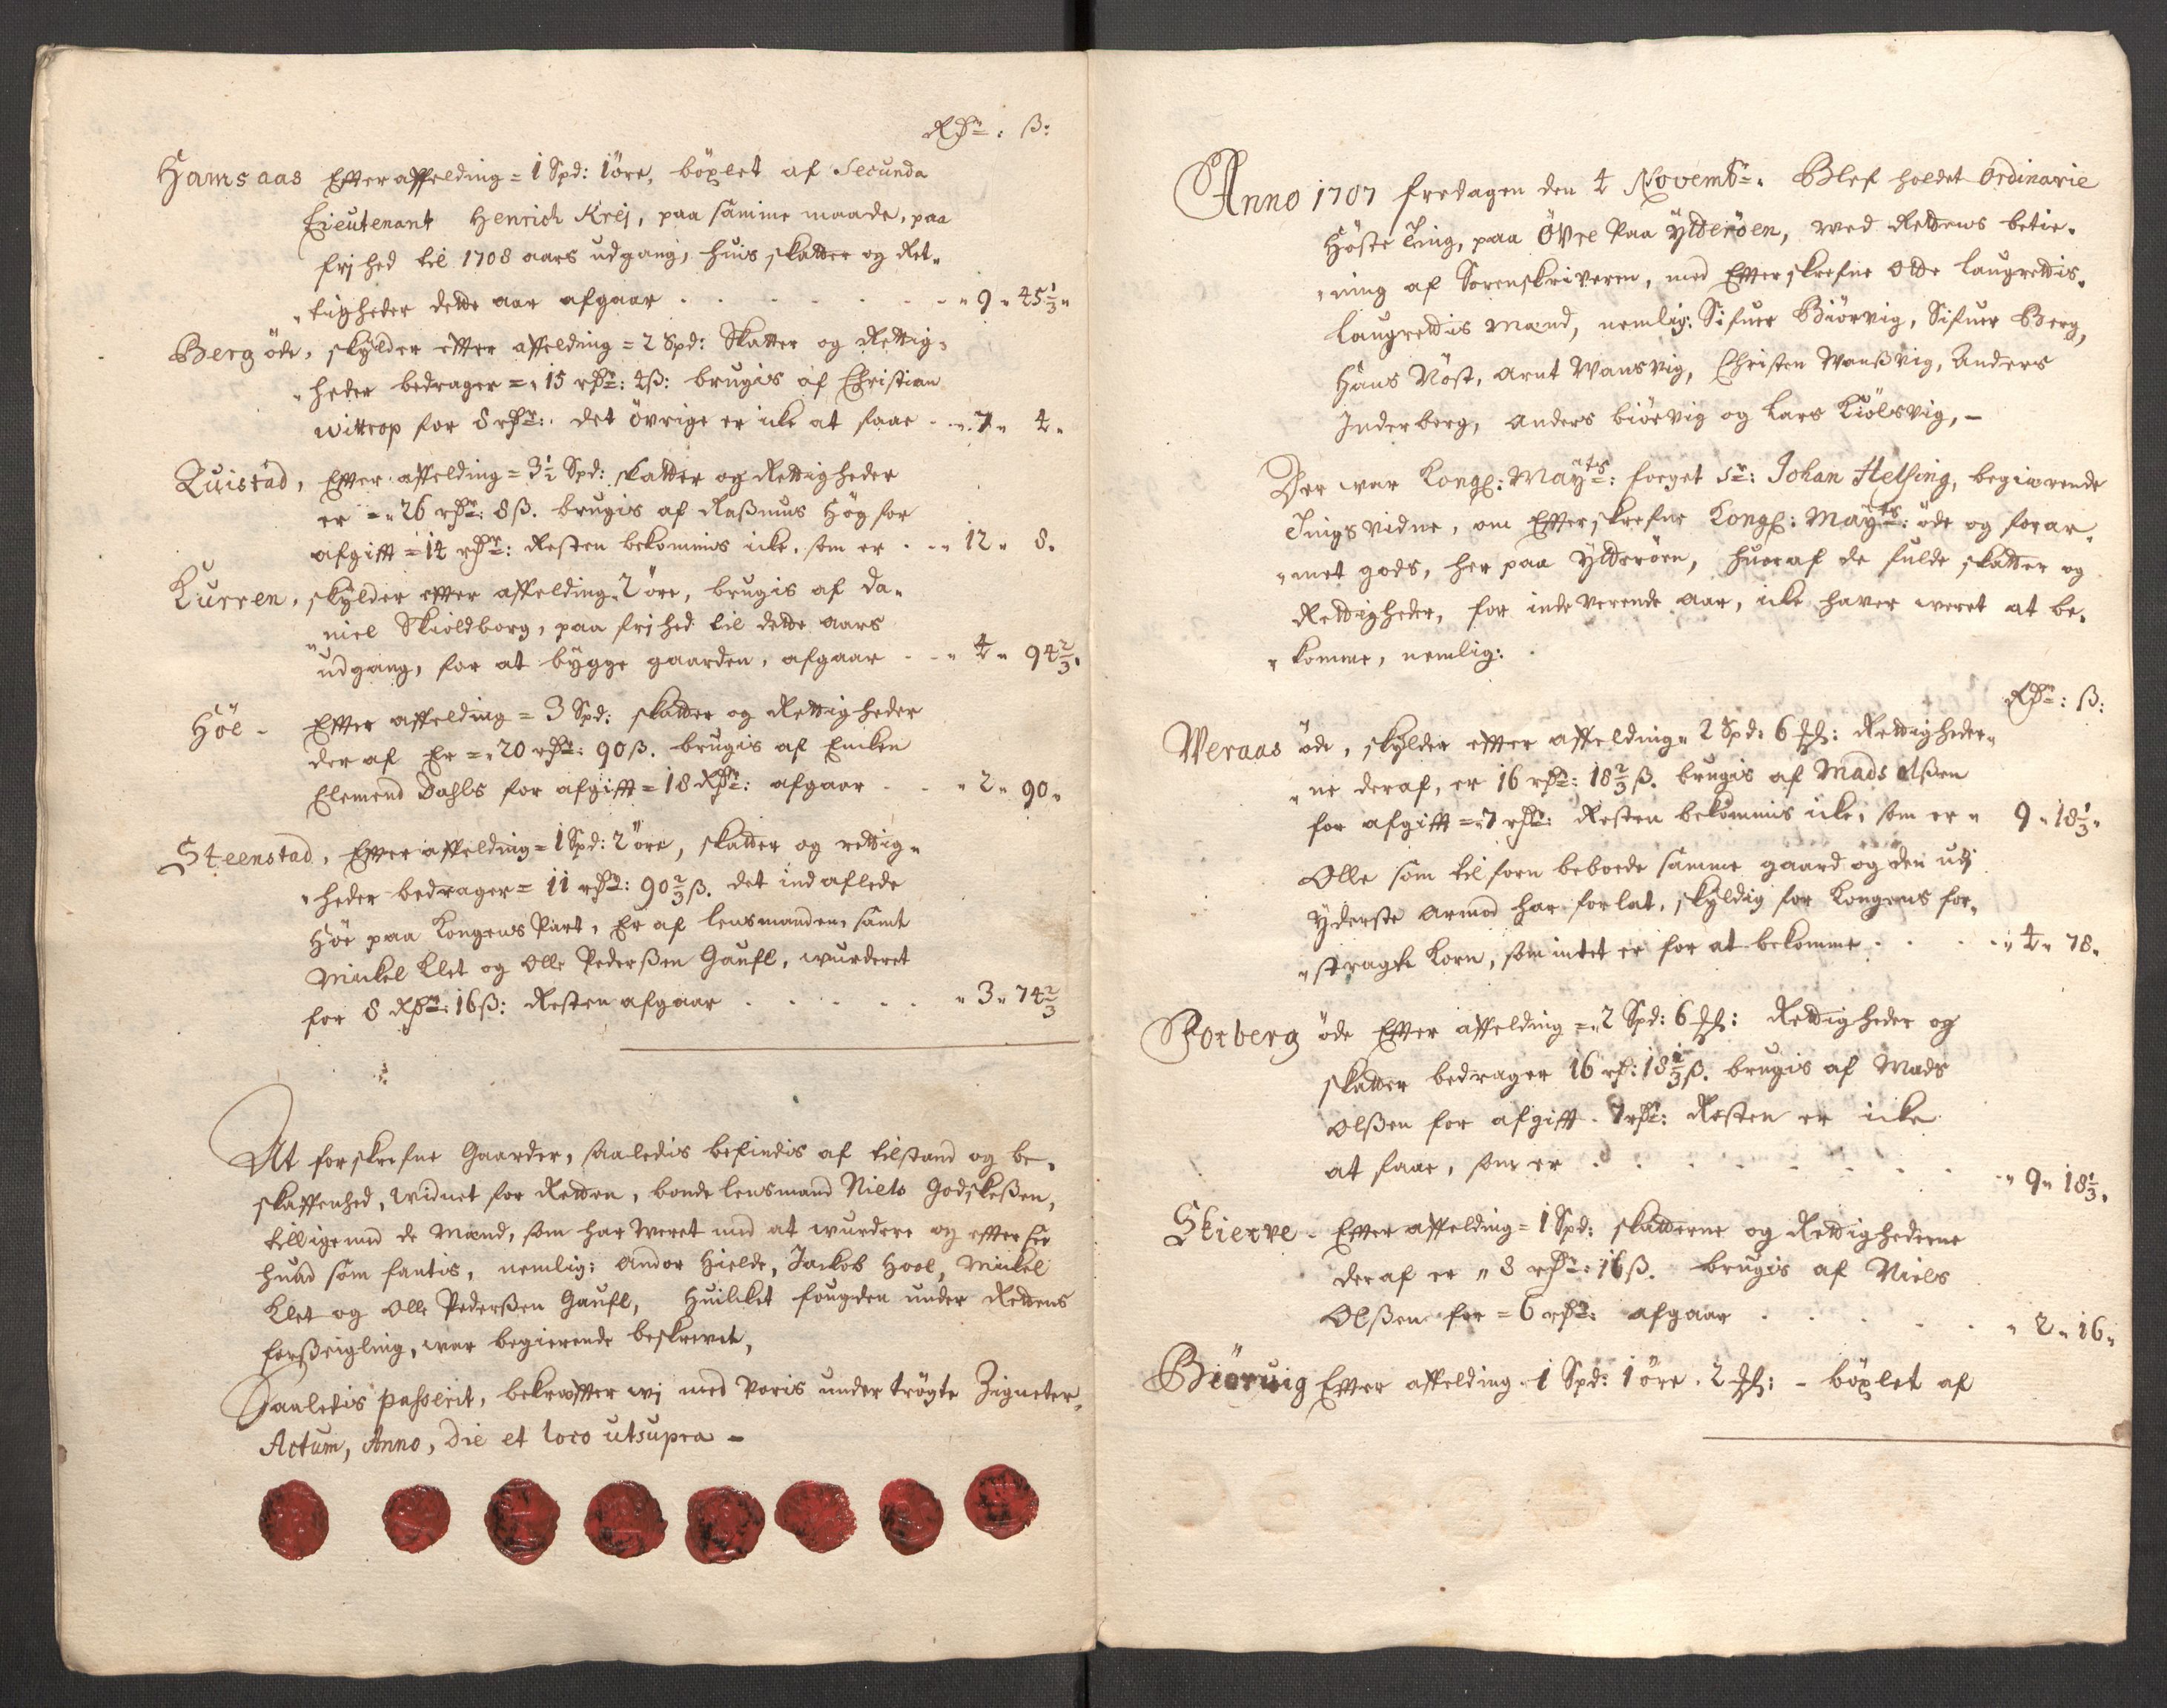 Rdr: ß:
Hamsaas Effter affelding = 1 Spd: 1 öre, böxlet af Secunda
Lieutenant Henrich Krej, paa samme maade, paa
frihed til 1708 aars udgang, huis skatter og Ret-
tigheder dette aar afgaar . . . . . . . 9 " 45 1/3 "
Berg öde, skylder effter affelding = 2 Spd: Skatter og Rettig-
heder bedrager = " 15 rdr: 4ß: brugis af Christian
Wittrop for 8 rdr: det övrige er icke at faae - " 7 " 4 "
Quistad, Effter affelding = 3 1/2 Spd: skatter og Rettigheder
er = " 26 rdr: 8ß. brugis af Rasmus Hög for
afgifft = 14 rdr: Resten bekommis icke, som er . . " 12 " 8.
Kurren, skylder effter affelding " 2 öre, brugis af Da-
niel Skioldborg, paa frihed til dette aars
udgang, for at bygge gaarden, afgaar . . " 4 " 94 2/3.
Höl - Effter affelding = 3 Spd: skatter og Rettigheder
der af Er = " 20 rdr: 90ß. brugis af Encken
Elemend Dahls for afgifft = 18 Rdr: afgaar . . " 2 " 90 "
Steenstad, Effter affelding = 1 Spd: 2 öre, skatter og rettig-
heder bedrager = 11 rdr: 90 2/3 ß. det indaflede
Höe paa Kongens Part, Er af lensmanden samt
Mickel Klet og Olle Pederßen Gaufl, wurderet
for 8 Rdr: 16ß: Resten afgaar . . . . . " 3 " 74 2/3
At forskrefne Gaarder, saaledis befindis af tilstand og be-
skaffenhed, Widnet for Retten, bonde lensmand Niels Godskeßen,
tilligemed de Mænd, som har weret med at wurdere og effter see
huad som fantis, nemlig: Andor Hielde, Jackob Hool, Mickel
Klet og Olle Pederßen Gaufl, Huilcket fougden under Rettens
forßeigling, war begierende beskrevet,
Saaledis passerit, bekræffter wj med Voris under trögte Zigneter,
Actum, Anno, die et loco utsupra -
Anno 1707 fredagen den 4 Novembr: Blef holdet Ordinarie
Höste Ting, paa Övre Paa Ytteröen, med Rettens betie-
ning af Sorenskriveren, med Effterskrefne Otte laugrettis-
laugrettis Mænd, nemlig: Sifuer Biörvig, Sifuer Berg,
Hans Nöst, Arnt Wansvig, Christen Wanßvig, Anders
Inderberg, Anders biörvig og Lars Kiölsvig, -
Der war Kongl: Mayts: foeget Sr: Johan Helsing, begiærende
Tingsvidne, om Effterskrefne Kongl: Mayts: öde og forar-
met gods, her paa Ytteröen, huoraf de fulde skatter og
Rettigheder, for indeverende aar, icke haver weret at be-
komme, nemlig:
Rdr: ß:
Weraas öde, skylder effter affelding " 2 Spd: 6 : Rettigheder-
ne deraf, er 16 rdr: 18 2/3 ß. brugis af Mads Olßen
for afgifft = " 7 rdr: Resten bekommis icke, som er " 9 " 18 1/3 "
Olle som tilforn beboede samme gaard og den udj
yderste Armod har forlat, skyldig for Kongens for-
stragte Korn, som intet er for at bekomme . . . . " 4 " 78 "
Forberg öde Effter affelding = " 2 Spd: 6 : Rettigheder og
skatter bedrager 16 rd: 18 1/3 ß. brugis af Mads
Olßen for afgifft . 7 rdr: Resten er icke
at faae, som er . . . . . . . . " 9 " 18 1/3.
Skierve - Effter affelding = 1 Spd: skatterne og Rettighederne
deraf er " 8 rdr: 16ß. brugis af Niels
Olßen for = 6 rdr: afgaar . . . . . . " 2 " 16 "
Biörvig Effter affelding . 1 Spd: 1 öre . 2 : - böxlet af